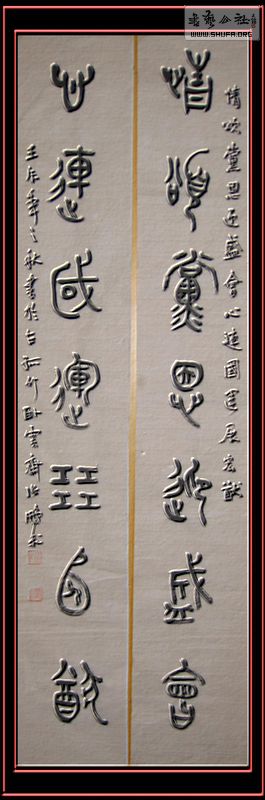 書藝公社
WWW.SHUFA.ORG
情頌黨恩迎盛會心連國運展宏猷
情頌黨恩迎盛會
心連國運展宏猷
壬辰年之秋書於古孤竹臥雲齋